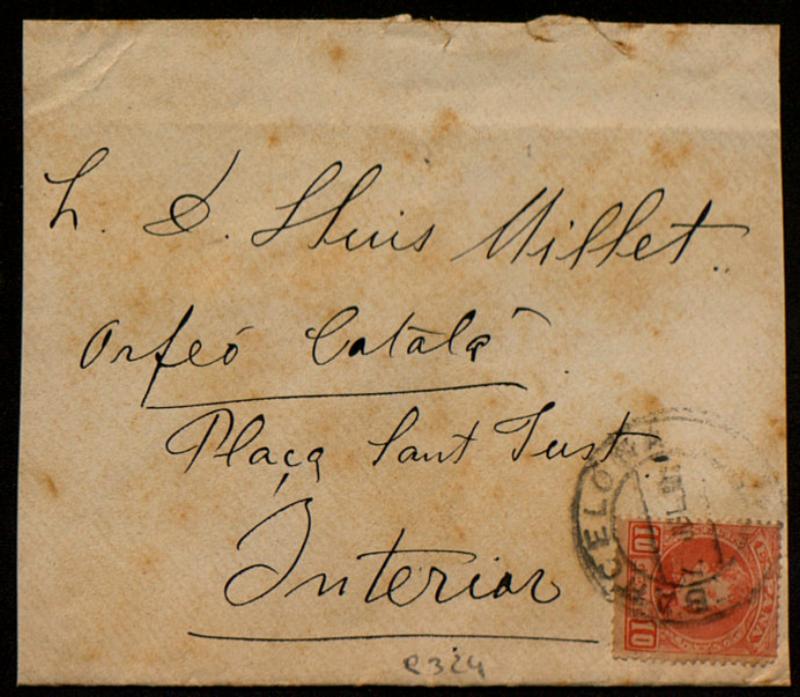 h. D. Lluis Millet.
Orfeó Català
Plaça Sant Just.
Interior
CELONA
10 10
ESPAÑA
R324